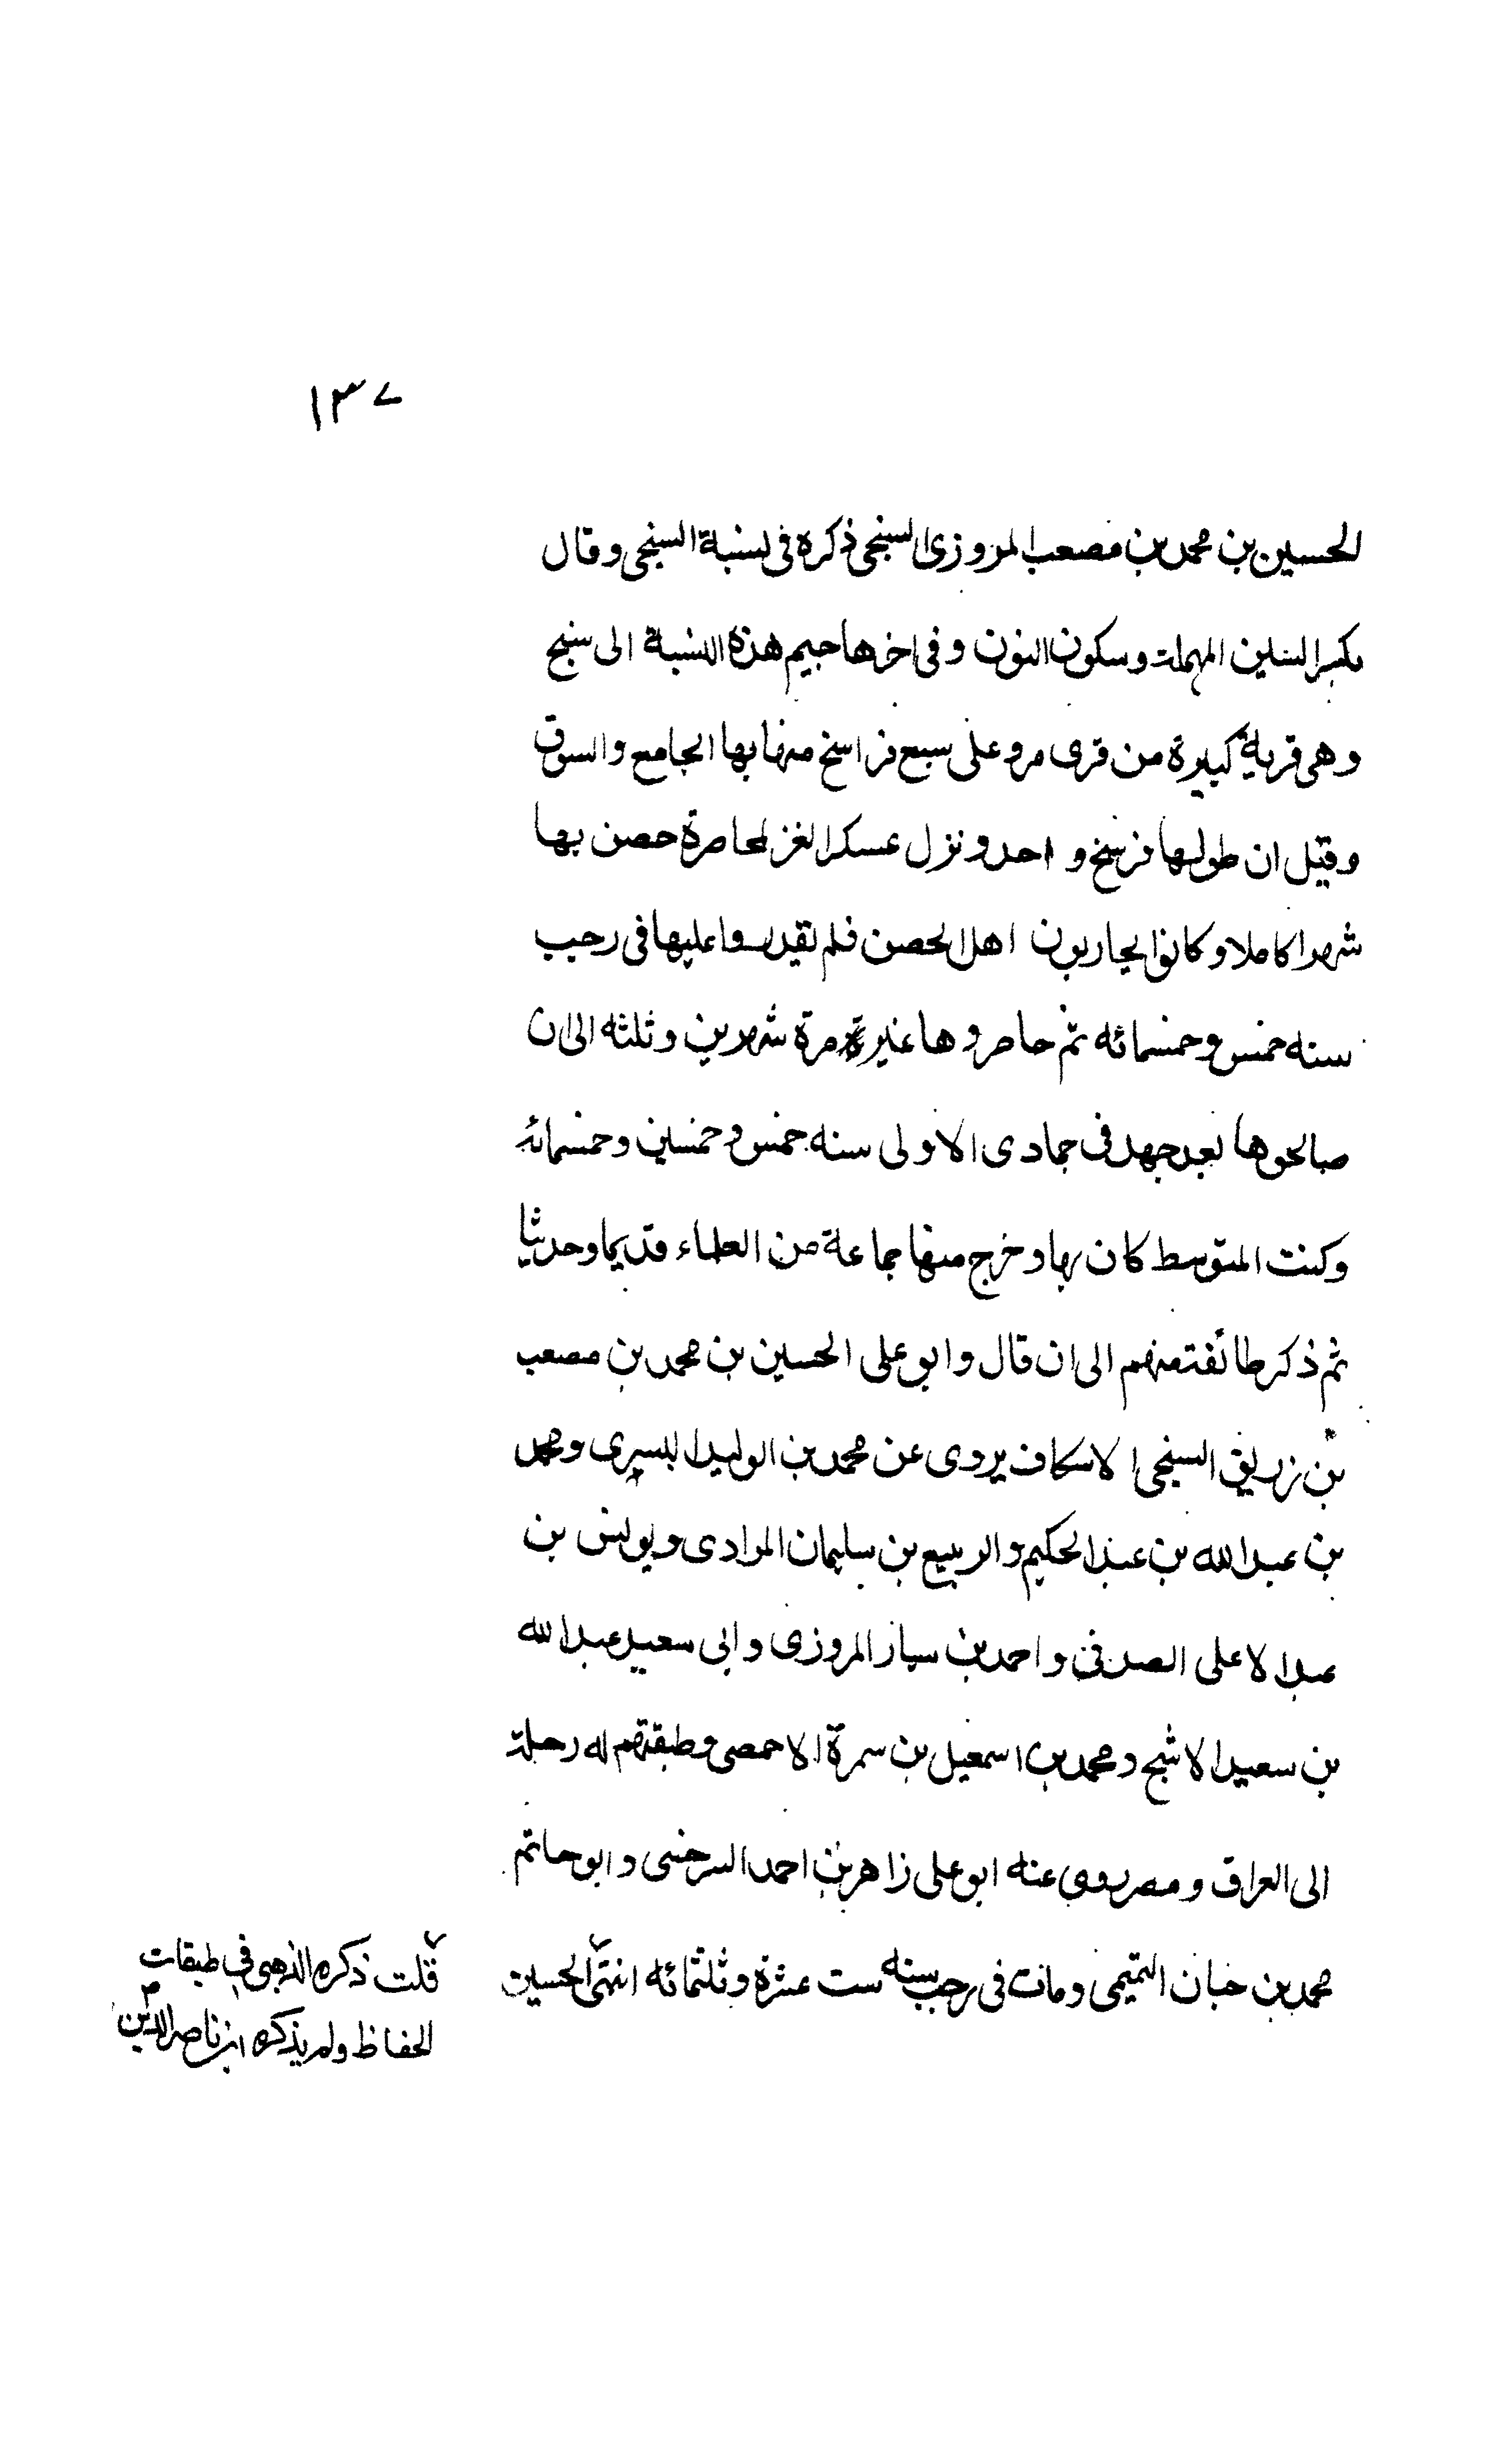 ١٣٧
الحسين بن محمد بن مصعب المروزى السنجى ذكره فى نسبة السنجى وقال
بكسر السين المهملة وسكون النون وفى اخرها جيم هذه النسبة الى سنج
وهى قرية كبيرة من قرى مرو على سبع فراسخ منها بها الجامع والسوق
وقيل ان طولها فرسخ واحد ونزل عسكر الغز لمحاصرة حصن بها
شهرا كاملا وكانوا يحاربون اهل الحصن فلم يقدروا عليها فى رجب
سنه خمس وخمسمائه ثم حاصروها غيرة مرة شهرين وثلثه الى ان
صالحوها بعد جهد فى جمادى الاولى سنه خمس وخمسين وخمسمائه
وكنت المتوسط كان بها وخرج منها جماعة من العلماء قديما وحديثا
ثم ذكر طائفة منهم الى ان قال وابو على الحسين بن محمد بن مصعب
بن زريق السنجى الاسكاف يروى عن محمد بن الوليد البسرى ومحمد
بن عبد الله بن عبد الحكيم والربيع بن سليمان المرادى ويونس بن
عبد الاعلى الصدفى واحمد بن سيار المروزى وابى سعيد عبد الله
بن سعيد الاشج ومحمد بن اسمعيل بن سمرة الاحمصى وطبقتهم له رحلة
الى العراق ومصر روى عنه ابو على زاهر بن احمد السرخسى وابو حاتم
محمد بن حبان التميمى ومات فى رجب سنه ست عشرة وثلثمائه انتهى الحسين
قلت ذكره الذهبى فى طبقات
الحفاظ ولم يذكره ابن ناصر الدين